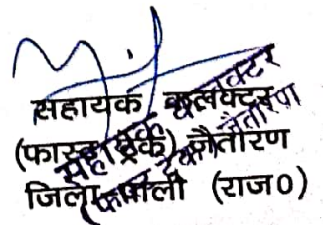 सहायक कलक्टर
(फास्ट ट्रेक) जैतारण
जिला पाली (राज०)
सहायक कलक्टर
(फास्ट ट्रेक) जैतारण